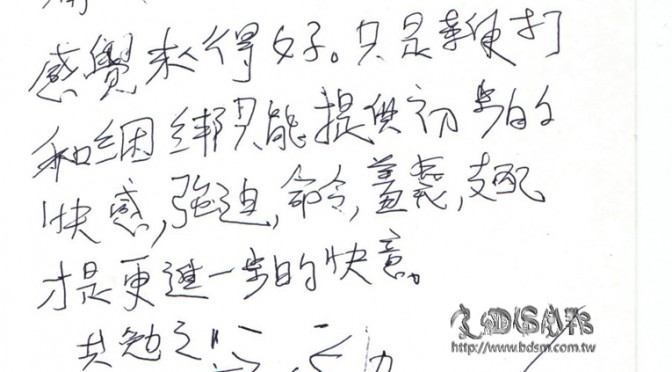 感覺來得好。只是鞭打
和綑綁只能提供初步的
快感,強迫,命令,羞辱,支配
才是更進一步的快意。
共勉之
http://www.bdsm.com.tw